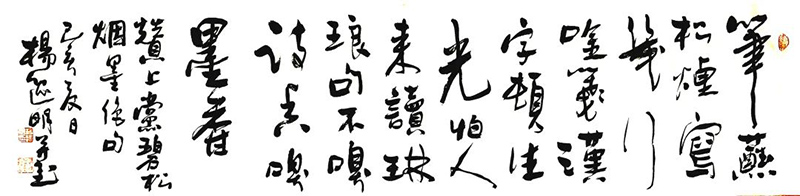 筆蘸
松煙寫
幾行
唫箋漢
字頓生
光怕人
来讀琳
琅句不嗅
詩香嗅
墨香
贊上黨碧松
烟墨絕句
己亥夏日
楊逸明并